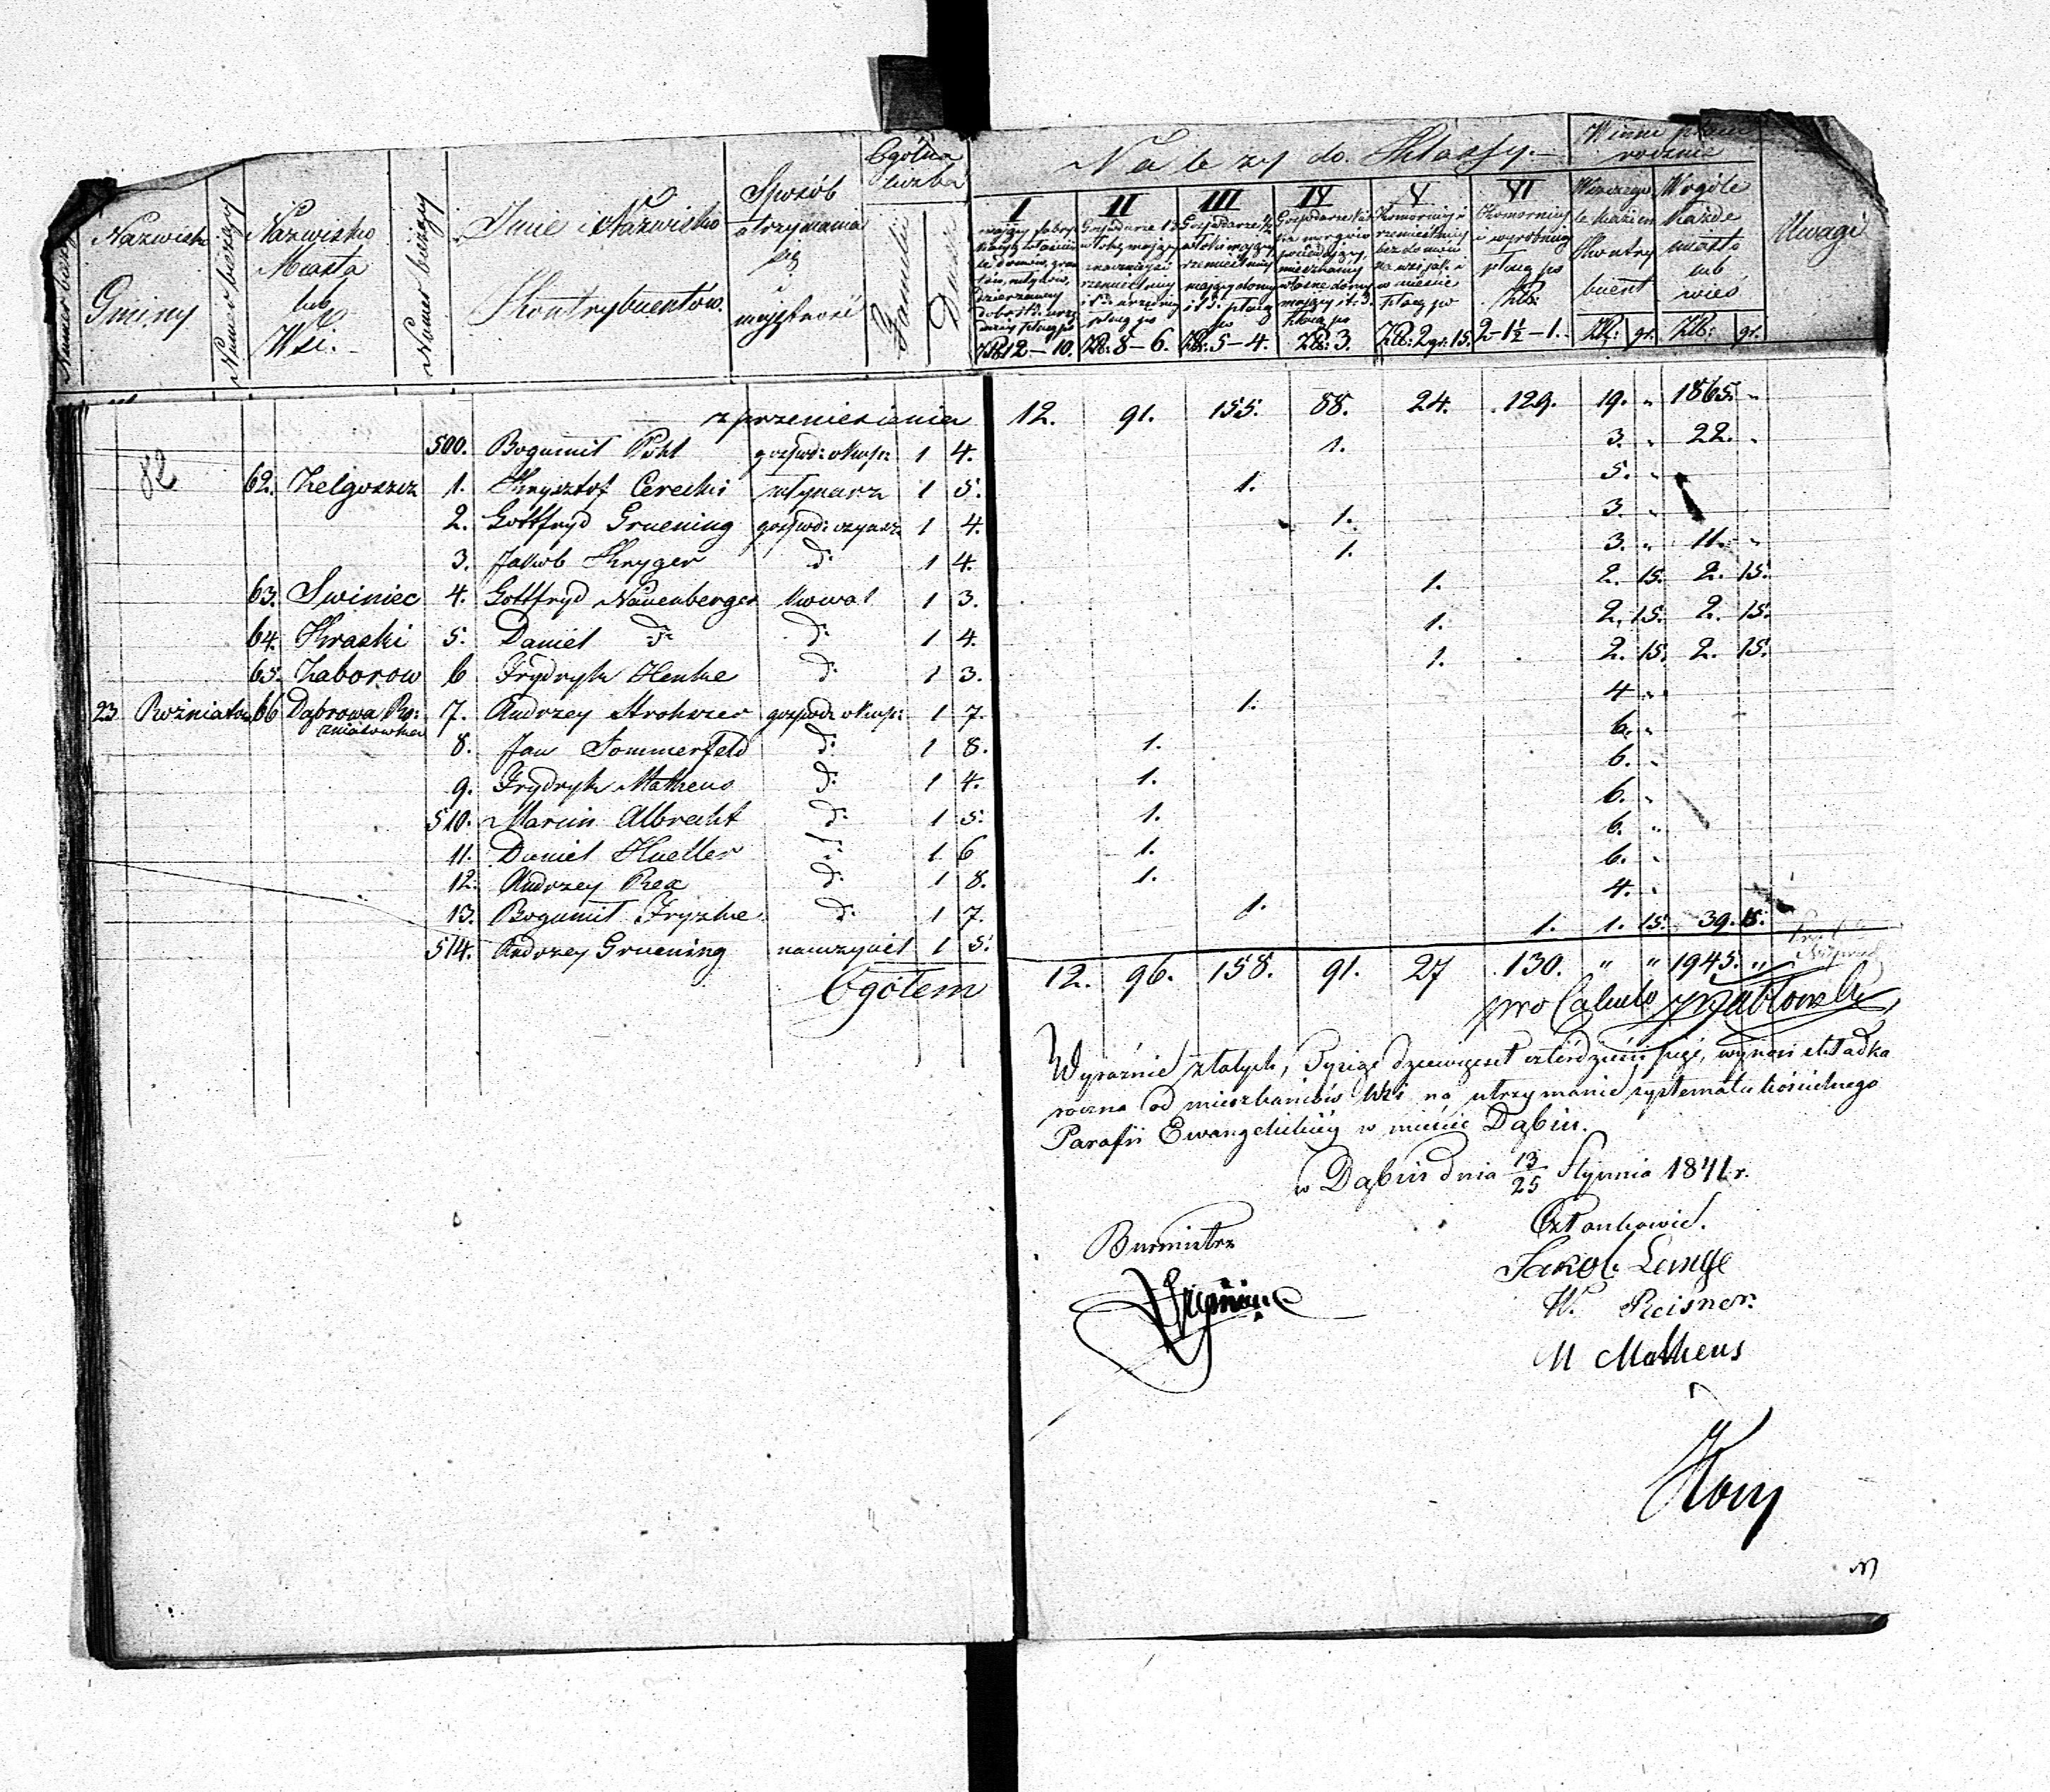 Numer bieżący
Nazwisko
Gminy
Numer bieżący
Nazwisko
Miasta
lub
Wsi.
Numer bieżący
Imie i Nazwisko
Kontrybuentów.
Sposób
utrzymania
się
i
majętność
Ogólna
liczba
Familii
Dusz
Należy do Klassy.
I
II
III
IV
V
VI
Złp: 12 – 10.
Złp: 8 – 6.
Złp: 5 – 4.
Złp: 3.
Złp: 2 gr: 15.
2 – 1½ – 1.
Winni płacić
rocznie
Kontry
buent
Złp: gr.
Wogóle
każde
miasto
lub
wieś
Złp: gr.
Uwagi
z przeniesienia 12. 91. 155. 88. 24. 129. 19. „ 1865. „
500. Bogumił Pohl gospod: okup: 1 4. 1. 3. „ 22. „
82 62. Zelgoszcz 1. Krysztof Cerecki młynarz 1 5. 1. 5. „
2. Gottfryd Gruening gospod: czynsz: 1 4. 1. 3. „
3. Jakób Kryger d: 1 4. 1. 3. „ 11. „
63. Swiniec 4. Gottfryd Nauenberger kowal 1 3. 1. 2. 15. 2. 15.
64. Kraski 5. Daniel d: d: 1 4. 1. 2. 15. 2. 15.
65. Zaborow 6 Frydryk Henke d: 1 3. 1. 2. 15. 2. 15.
23 Rożniatow 66 Dąbrowa Ro: 7. Andrzey Strohszer gospod: okup: 1 7. 1. 4 „
zniatowska
8. Jan Sommerfeld d: 1 8. 1. 6. „
9. Frydryk Matheus d: 1 4. 1. 6. „
510. Marcin Albrecht d: 1 5. 1. 6. „
11. Daniel Hueller d: 1 6 1. 6. „
12. Andrzey Rex d: 1 8. 1. 6. „
13. Bogumił Fryzke d: 1 7. 1. 4. „
514. Andrzey Gruening nauczyciel 1 5. 1. 1. 15. 39. 15.
Ogółem 12. 96. 158. 91. 27 130. „ „ 1945. „
pro Calculo
Wyraźnie złotych, Tysiąc dziewięset czterdzieści pięć, wynosi składka
roczna od mieszkańców Wsi na utrzymanie systematu kościelnego
Parafii Ewangelickiey w mieście Dąbiu.
w Dąbiu dnia 13/25 Stycznia 1841 r.
Burmistrz
Członkowie.
Jakob Lange
W. Reisner.
M Matheus